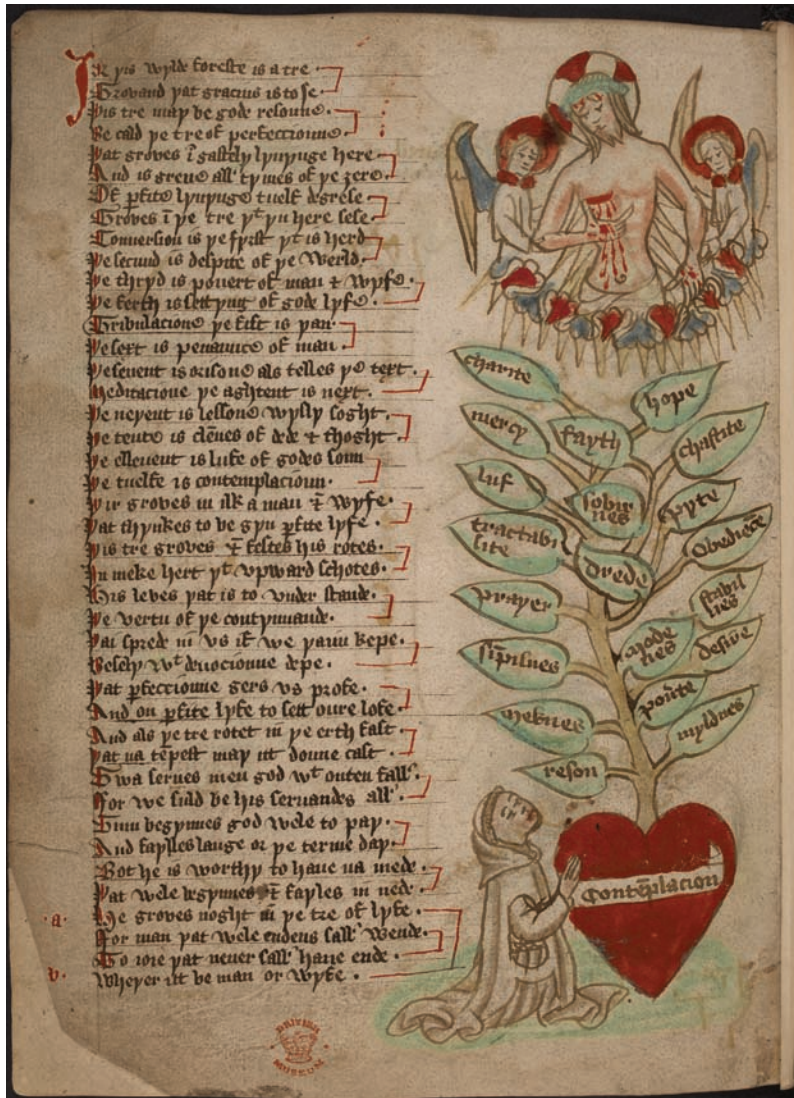 In þis wylde foreste is a tre
Growand þat gracius is to se
Þis tre may be gode resoune
Be cald þe tre of perfeccioune
Þat growes ī gastely lyfynge here
And is grene all tymes of þe ȝere
Of p̄fite lyfynge twelf degrese
Growes ī þe tre þt þu here sese
Conversion is þe fyrst þt is herd
Þe secund is despite of þe werld
Þe thryd is pouert of man & wyfe
Þe ferth is settyng of gode lyfe
Tribulacione þe fift is þan
Þe sext is penaunce of man
Þe seuent is orisone als telles þe text
Meditacioune þe aghtent is next
Þe neyent is lessone wysly soght
Þe tente is clēnes of dede & thoght
Þe elleuent is lufe of godes sonn
Þe twelfe is contemplacioun
Þir growes in ilk a man & wyfe
Þat thynkes to be gyn p̄fite lyfe
Þis tre growes & festes his rotes
In meke hert þt vpward schotes
His leves þat is to vnder stande
Þe vertu of þe contynuande
Þai sprede in vs if we þaim kepe
Besely wt deuocionne depe
Þat p̄feccioune gers vs profe
And on p̄fite lyfe to sett oure lofe
And als þe tre rotet in þe erth fast
Þat na tēpest may itt doune cast
Swa serues men god wt outen fall
For we suld be his seruandes all
Sum begynnes god wele to pay
And fayles lange or þe terme day
Bot he is worthy to haue na mede
Þat wele begynnes & fayles in nede
.a. He growes noght in þe tre of lyfe
For man þat wele endens sall wende
To ioie þat neuer sall haue ende
b. Wheþer itt be man or wyfe
charite
hope
mercy
fayth
chastite
luf
sobir
nes
pyte
tractabi
lite
drede
Obediēce
prayer
stabil
nes
mode
nes
desire
sīpilnes
pou̅te
meknes
myldnes
reson
Contēplacion
BRITISH
MUSEUM